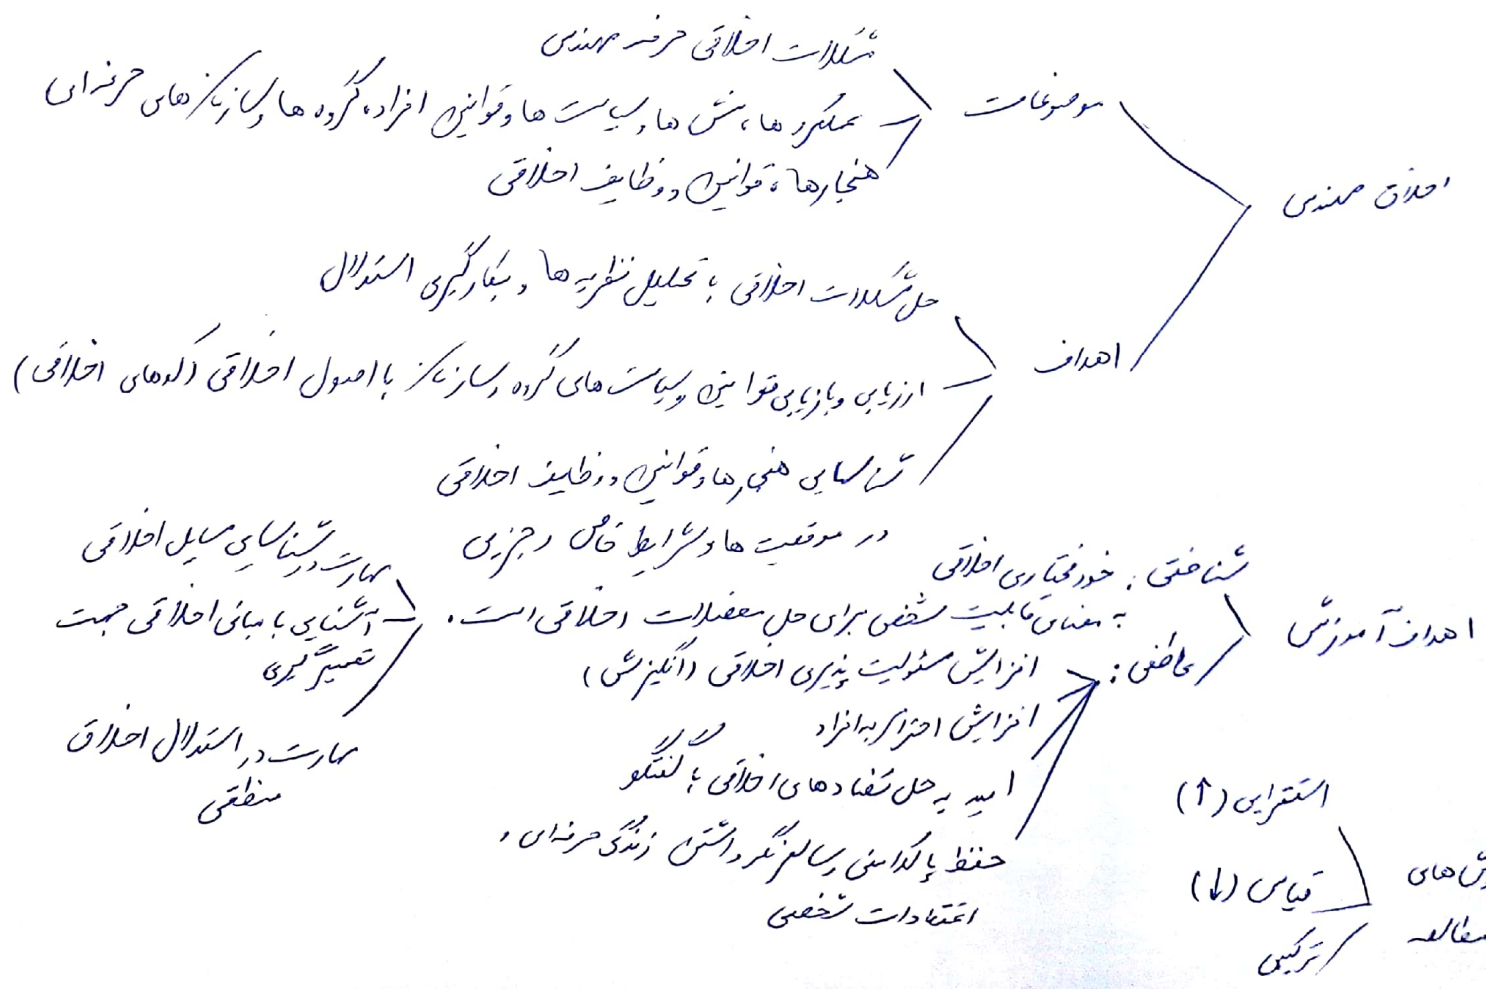 اخلاق مهندسی
موضوعات
مشکلات اخلاقی حرفه مهندسی
عملکردها، منش ها و سیاست ها و قوانین افراد، گروه ها و سازمان های حرفه ای
هنجارها، قوانین و وظایف اخلاقی
اهداف
حل مشکلات اخلاقی با تحلیل نظریه ها و بکارگیری استدلال
ارزیابی و بازیابی قوانین و سیاست های گروه و سازمان با اصول اخلاقی (کدهای اخلاقی)
شناسایی هنجارها و قوانین و وظایف اخلاقی
در موقعیت ها و شرایط خاص و جزیی
اهداف آموزش
شناختی: خودمختاری اخلاقی
به معنای قابلیت شخص برای حل معضلات اخلاقی است.
مهارت در شناسایی مسایل اخلاقی
آشنایی با مبانی اخلاقی جهت
تصمیم گیری
مهارت در استدلال اخلاق
منطقی
عاطفی:
افزایش مسئولیت پذیری اخلاقی (انگیزش)
افزایش احترام به افراد
امید به حل تضادهای اخلاقی با گفتگو
حفظ پاکدامنی و سالم نگه داشتن زندگی حرفه ای و
اعتقادات شخصی
های
مطالعه
استقرایی (↑)
قیاس (↓)
ترکیبی